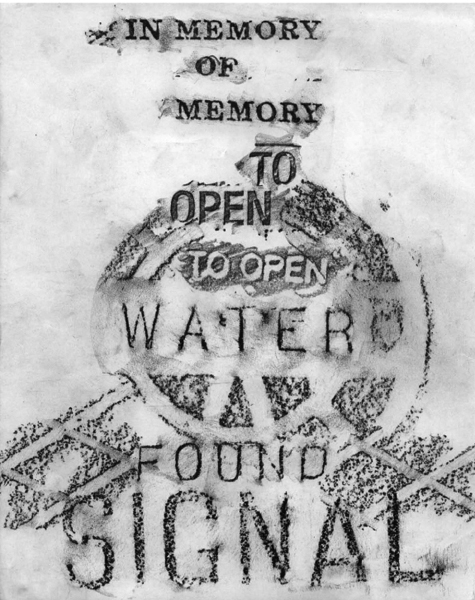 IN MEMORY
OF
MEMORY
TO
OPEN
TO OPEN
WATER
FOUND
SIGNAL